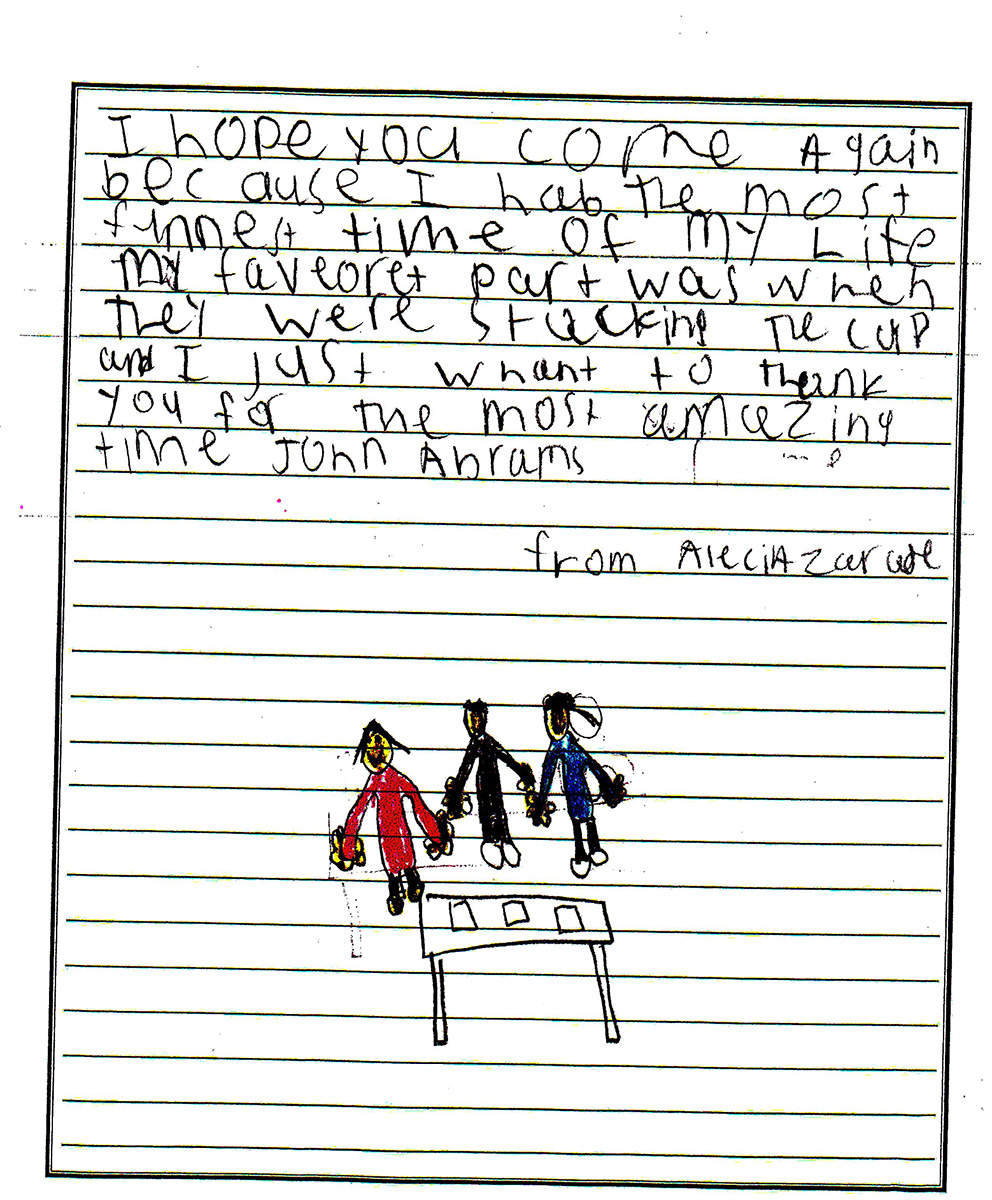 I hope you come Again
bec ause I hab the most
funnest time of My Life
My faveoret part was when
they were stacking the cup
and I just whant to thank
you for the most amazing
time John Abrams
from AleciA zarate